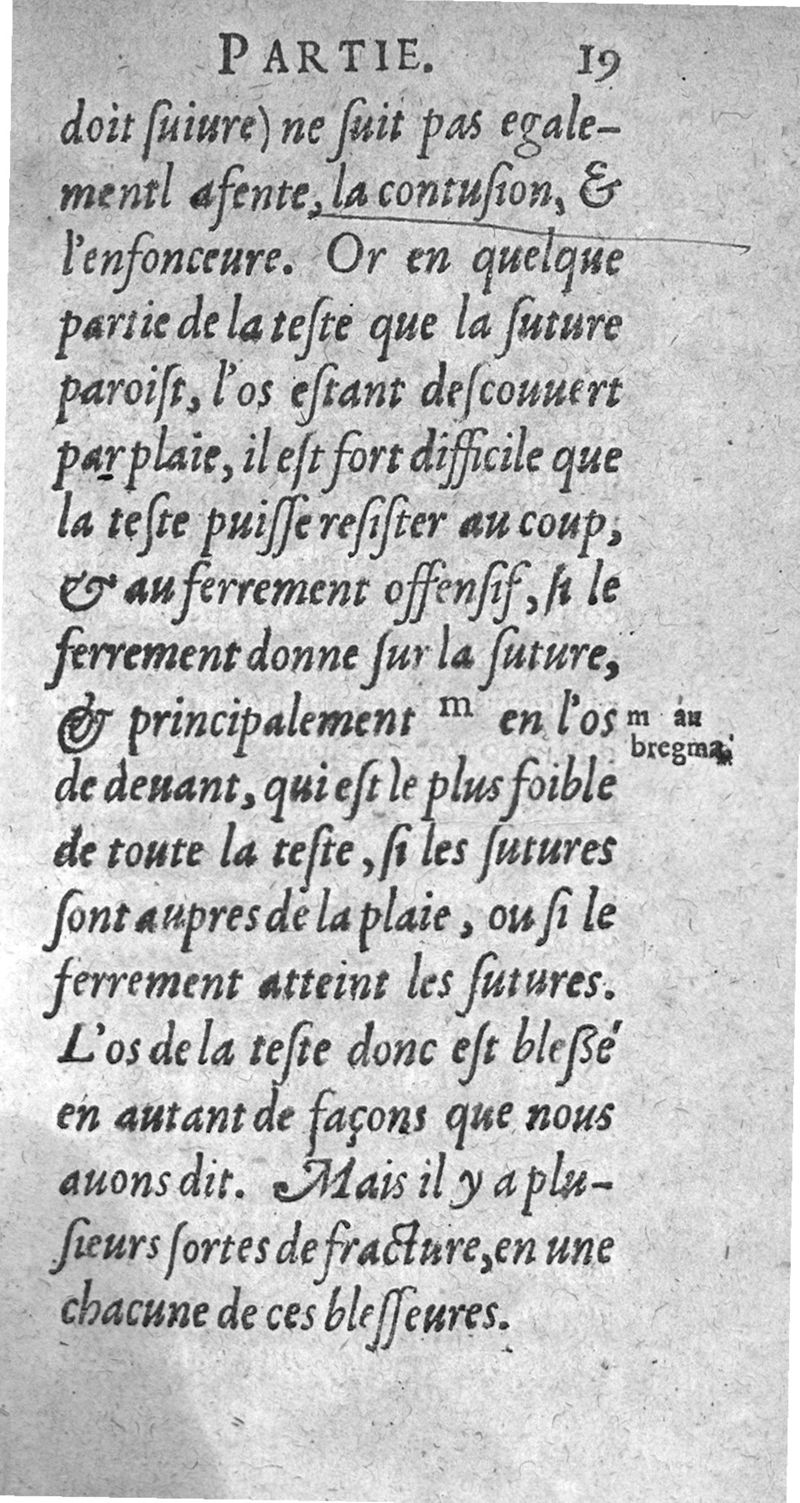 PARTIE. 19
doit ſuiure) ne ſuit pas egale-
mentl afente, la contuſion, &
l'enfonceure. Or en quelque
partie de la teſte que la ſuture
paroiſt, l'os eſtant deſcouuert
par plaie, il eſt fort difficile que
la teſte puiſſe reſiſter au coup,
& au ferrement offenſif, ſi le
ferrement donne ſur la ſuture,
& principalement m en l'os
m au
bregma.
de deuant, qui eſt le plus foible
de toute la teſte, ſi les ſutures
ſont aupres de la plaie, ou ſi le
ferrement atteint les ſutures.
L'os de la teſte donc eſt bleſſé
en autant de façons que nous
auons dit. Mais il y a plu-
ſieurs ſortes de fracture, en une
chacune de ces bleſſeures.